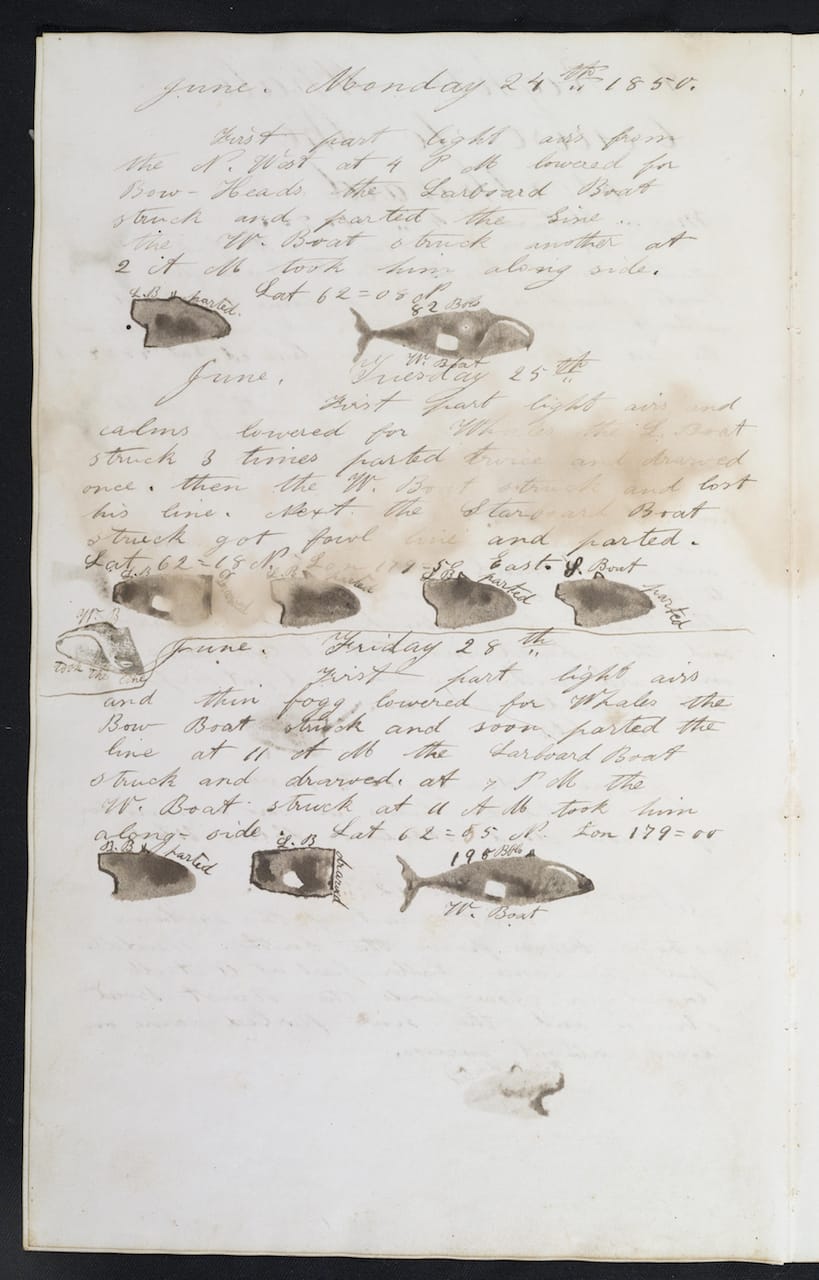 June. Monday 24th 1850.
First part light airs from
the N. West at 4 P M lowered for
Bow-Heads the Larboard Boat
struck and parted the Line.
the W. Boat struck another at
2 A M took him along side.
Lat 62=08 N
L.B parted.
82 Bbls
W. Boat
June. Tuesday 25th
First part light airs and
calms lowered for Whales the L. Boat
struck 3 times parted twice and drawed
once. then the W. Boat struck and lost
his line. Next the Starboard Boat
struck got fowl line and parted.
Lat 62=18 N. Lon 179=58 East.
L.B
L.B parted
L.B parted
S. Boat parted
W. B
took the line
June. Friday 28th
First part light airs
and thin fogg lowered for Whales the
Bow Boat struck and soon parted the
line at 11 A M the Larboard Boat
struck and drawed. at 7 P M the
W. Boat struck at 11 A M took him
along-side. Lat 62=55 N. Lon 179=00
B. B parted
L. B drawd
190 Bbls
W. Boat